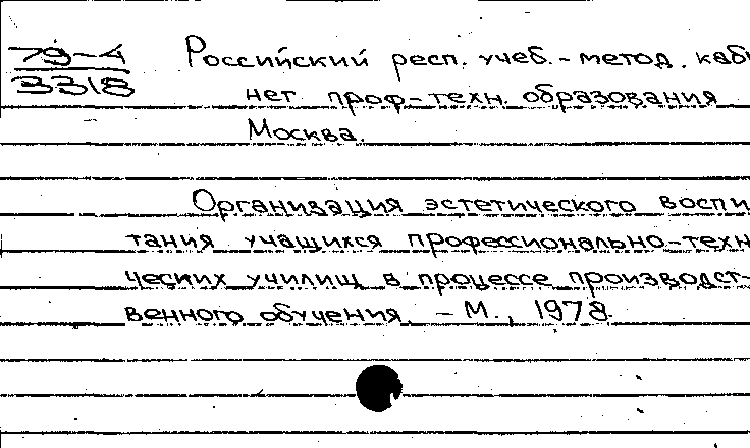 79-4
3318
Российский респ. учеб.-метод. каби
нет проф-техн. образования
Москва.
Организация эстетического воспи
тания учащихся профессионально-техн
ческих училищ в процессе производст-
венного обучения. - М., 1978.